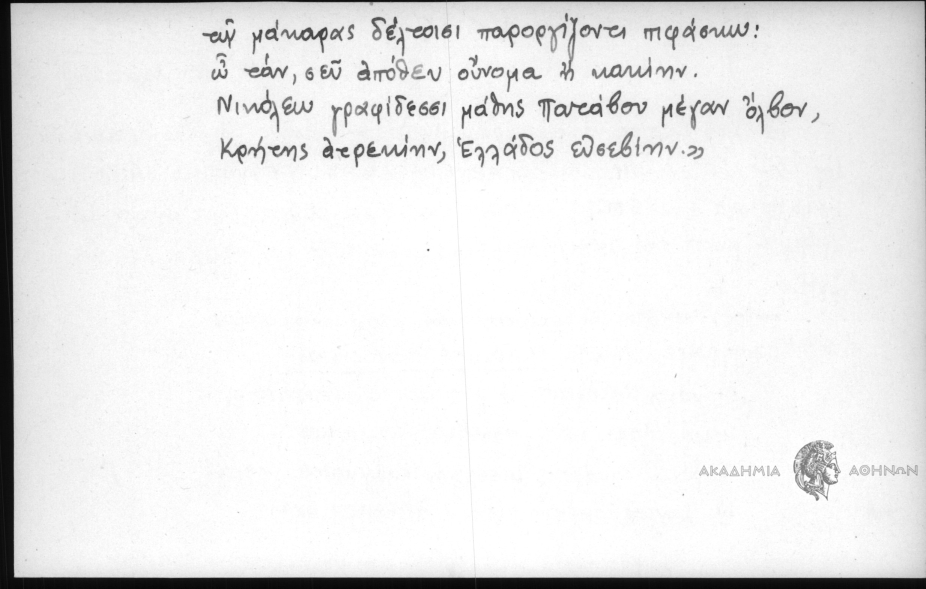 τῷ μάκαρας δέλτοισι παροργίζοντι πιφάσκω:
ὦ τάν, σεῦ ἀπόθευ οὔνομα ἢ κακίην.
Νικόλεω γραφίδεσσι μάθης Παταβου μέγαν ὄλβον,
Κρήτης ἀτρεκίην, Ἑλλάδος εὐσεβίην.»
ΑΚΑΔΗΜΙΑ ΑΘΗΝΩΝ